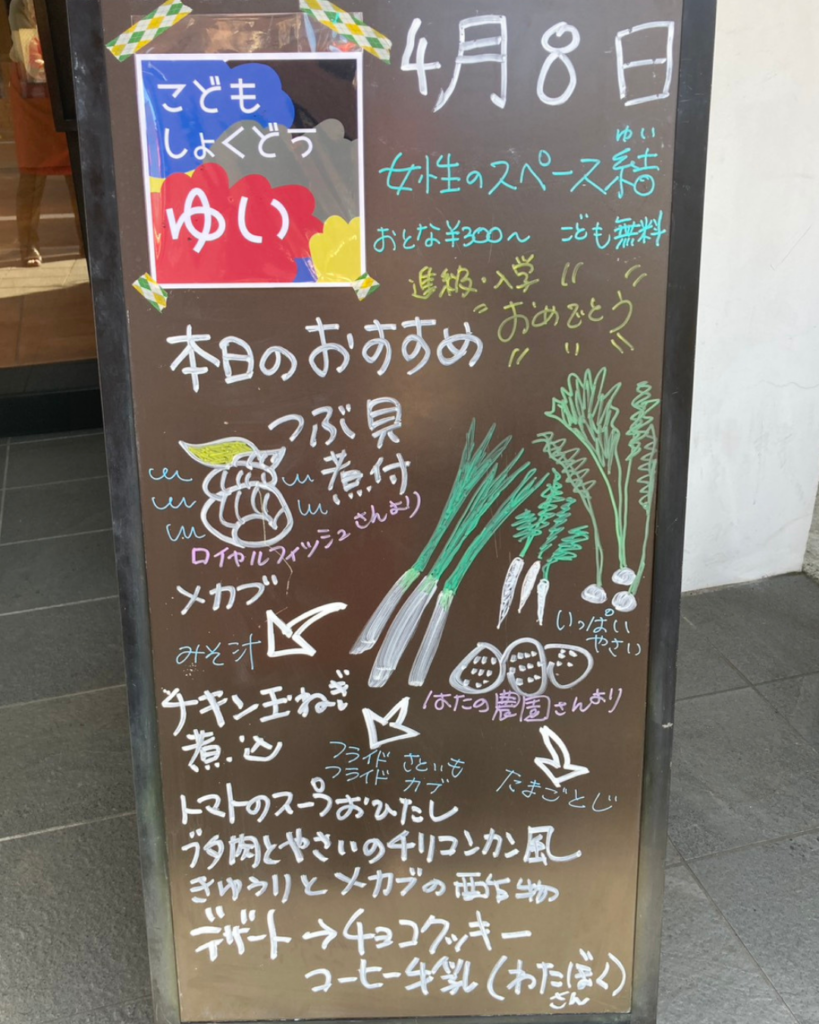 こども
しょくどう
ゆい
4月8日
ゆい
女性のスペース結
おとな¥300〜 こども無料
進級・入学
おめでとう
本日のおすすめ
つぶ貝
煮付
ロイヤルフィッシュさんより
メカブ
みそ汁
いっぱい
やさい
はたの農園さんより
チキン玉ねぎ
煮込
フライド さといも
フライド カブ
たまごとじ
トマトのスープおひたし
ブタ肉とやさいのチリコンカン風
きゅうりとメカブの酢物
デザート→チョコクッキー
コーヒー牛乳(わたぼく)
さん